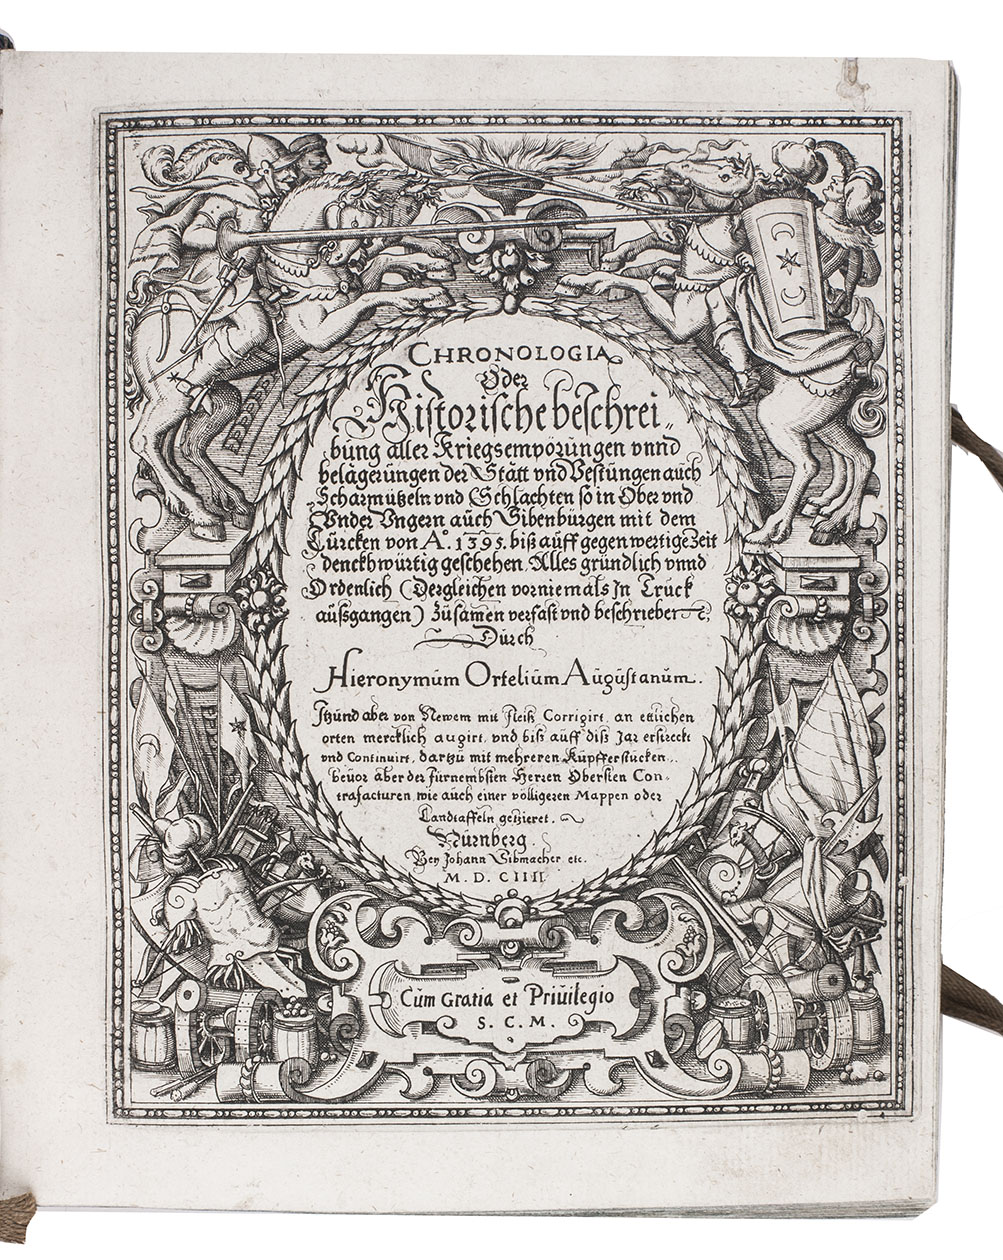 CHRONOLOGIA
Oder
Historische beschrei„
bung aller Kriegsempörungen vnnd
belägerüngen der Stätt vnd Vestüngen auch
Scharmützeln vnd Schlachten so in Ober vnd
Vnder Vngern aüch Sibenbürgen mit dem
Türcken von A.° 1395. biß aüff gegenwertige Zeit
denckhwürtig geschehen, Alles gründlich vnnd
Ordenlich (Dergleichen vorniemals Jn Trück
aüßgangen) Züsamen verfast vnd beschrieben ꝛc,
Dürch
Hieronymüm Ortelium Augüstanüm.
Jtzünd aber von Newem mit fleiß Corrigirt, an etlichen
orten mercklich augirt, vnd biß auff diß Jar erstreckt
vnd Continuirt, dartzü mit mehreren Küpfferstücken,
beüor aber der fürnembsten Herren Obersten Con„
trafacturen, wie aüch einer völligeren Mappen oder
Landtaffeln gezieret.
Nürnberg.
Bey Johann Sibmacher etc.
M. D. CIIII
Cüm Gratia et Priüilegio
S. C. M.